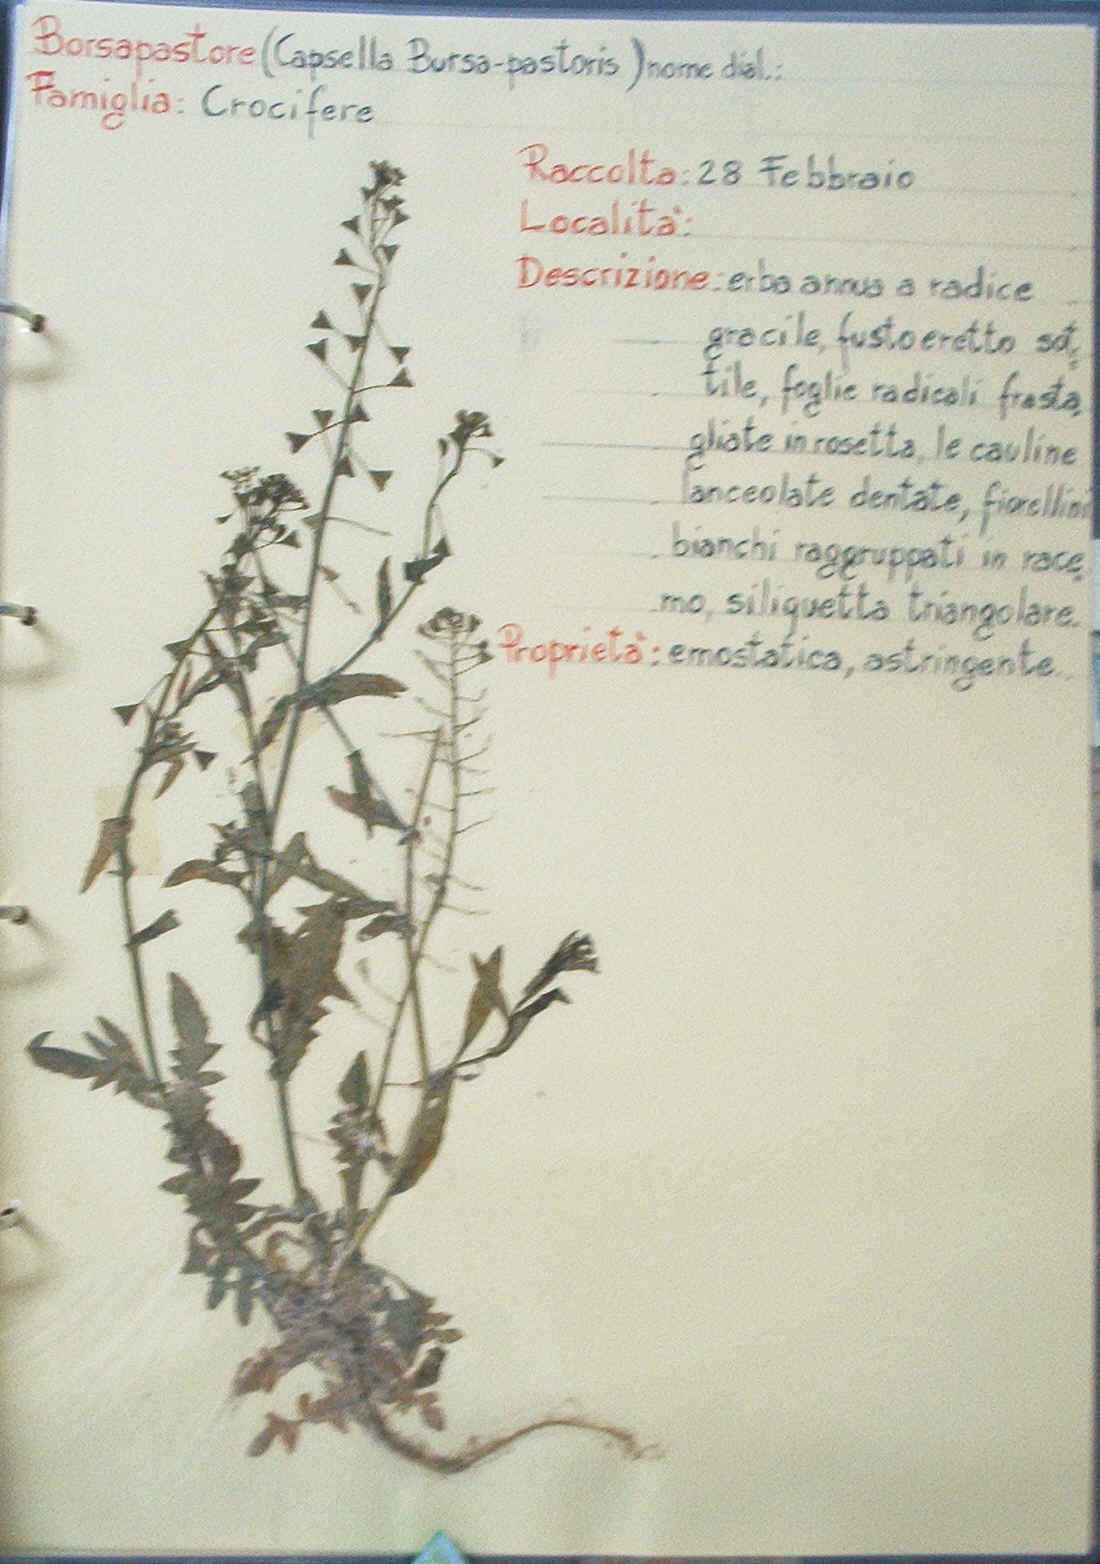 Borsapastore (Capsella Bursa-pastoris) nome dial.:
Famiglia: Crocifere
Raccolta: 28 Febbraio
Località:
Descrizione: erba annua a radice
gracile, fusto eretto sot
tile, foglie radicali frasta
gliate in rosetta, le cauline
lanceolate dentate, fiorellini
bianchi raggruppati in race
mo, siliquetta triangolare.
Proprietà: emostatica, astringente.